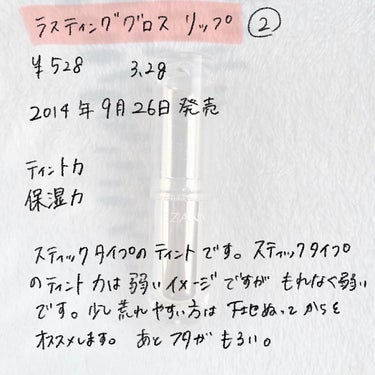 ラスティンググロス リップ ②
¥528 3.2g
2014年9月26日発売
ティント力
保湿力
スティックタイプのティントです。スティックタイプ
のティント力は弱いイメージですが もれなく弱い
です。少し荒れやすい方は 下地ぬってからを
オススメします。 あと フタが もろい。